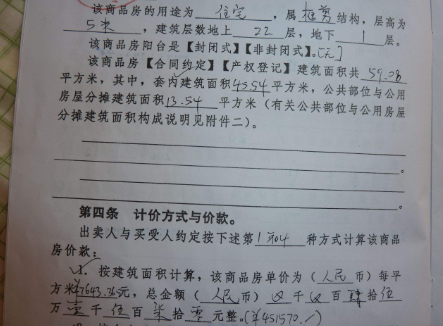 该商品房的用途为 住宅 ，属 框剪 结构，层高为
5米 ，建筑层数地上 22 层，地下 1 层。
该商品房阳台是【封闭式】【非封闭式】。[无]
该商品房【合同约定】【产权登记】建筑面积共 59.08
平方米，其中，套内建筑面积 45.54 平方米，公共部位与公用
房屋分摊建筑面积 13.54 平方米（有关公共部位与公用房屋
分摊建筑面积构成说明见附件二）。
。
。
第四条 计价方式与价款。
出卖人与买受人约定按下述第 1和4 种方式计算该商品
房价款：
1. 按建筑面积计算，该商品房单价为（ 人民 币）每平
方米 元，总金额（ 人民 币） 百 拾 伍
万 壹 千 伍 百 拾 零 元整。（¥451570.）